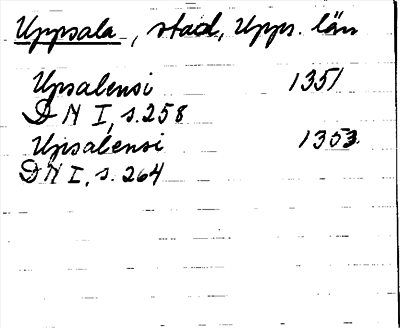 Uppsala, stad, Upps. län
Upsalensi 1351
DN I, s. 258
Upsalensi 1353.
DN I, s. 264